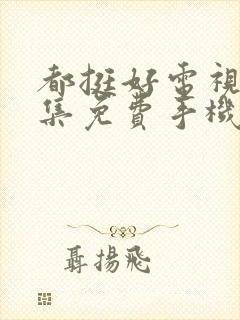 都挺好電視
集免費手機
聶揚飛